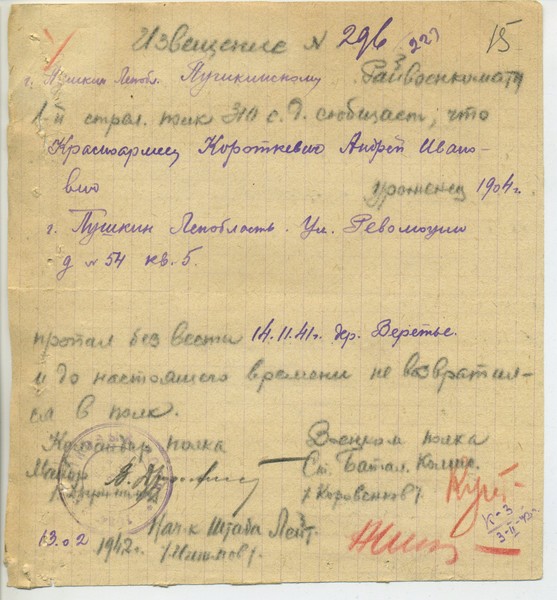 Извещение № 296/227 15
г. Пушкин Ленобл. Пушкинскому Райвоенкомату
1-й стрел. полк 310 с.д. сообщает, что
Красноармеец Короткевич Андрей Ивано-
вич уроженец 1904 г.
г. Пушкин Ленобласть. Ул. Революции
д № 54 кв. 5.
пропал без вести 14.11.41г. др. Веретье.
и до настоящего времени не возвратил-
ся в полк.
Командир полка Военком полка
Майор Ст. Батал. Комис.
/Коровенков/
13.02 1942г. Нач-к Штаба Лейт.